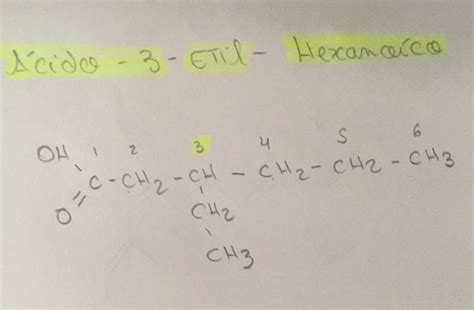 Ácido - 3 - ETil - Hexanoíco
OH 1 2 3 4 5 6
C - CH2 - CH - CH2 - CH2 - CH3
O CH2
CH3